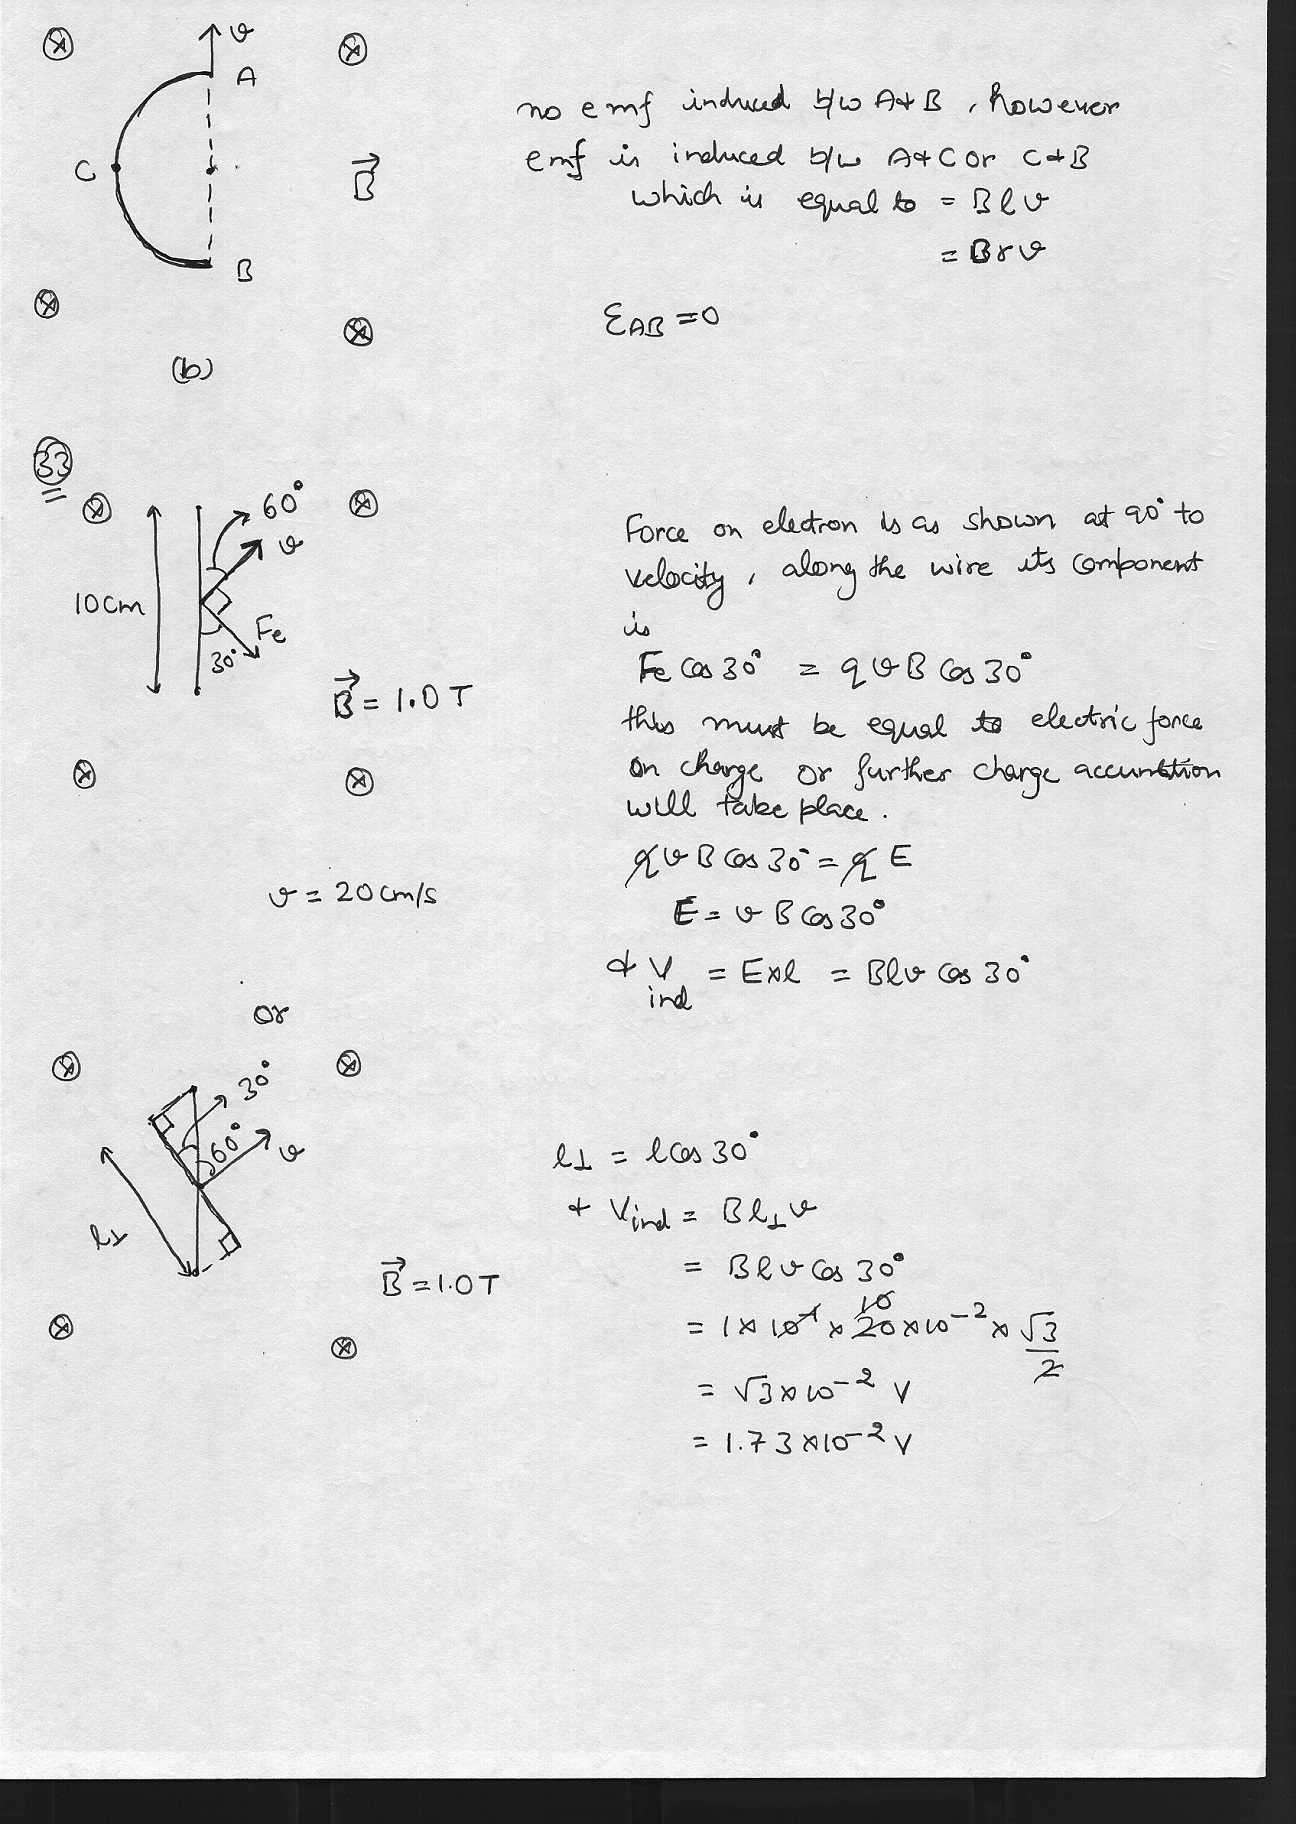 v
A
no emf induced b/w A & B, however
C
B⃗
emf is induced b/w A & C or C & B
which is equal to = Blv
B
= Brv
Ɛ_AB = 0
(b)
33
60°
v
10cm
Fe
30°
B⃗ = 1.0 T
Force on electron is as shown at 90° to
velocity, along the wire its component
is
Fe Cos 30° = qvB Cos 30°
this must be equal to electric force
on charge or further charge accumltion
will take place.
v = 20 cm/s
qvB Cos 30° = qE
E = vB Cos 30°
& V_ind = E×l = Blv Cos 30°
or
30°
60°
v
l⊥
B⃗ = 1.0 T
l⊥ = l Cos 30°
& V_ind = Bl⊥v
= Blv Cos 30°
10
= 1 × 10⁻¹ × 20 × 10⁻² × √3/2
= √3 × 10⁻² V
= 1.73 × 10⁻² V